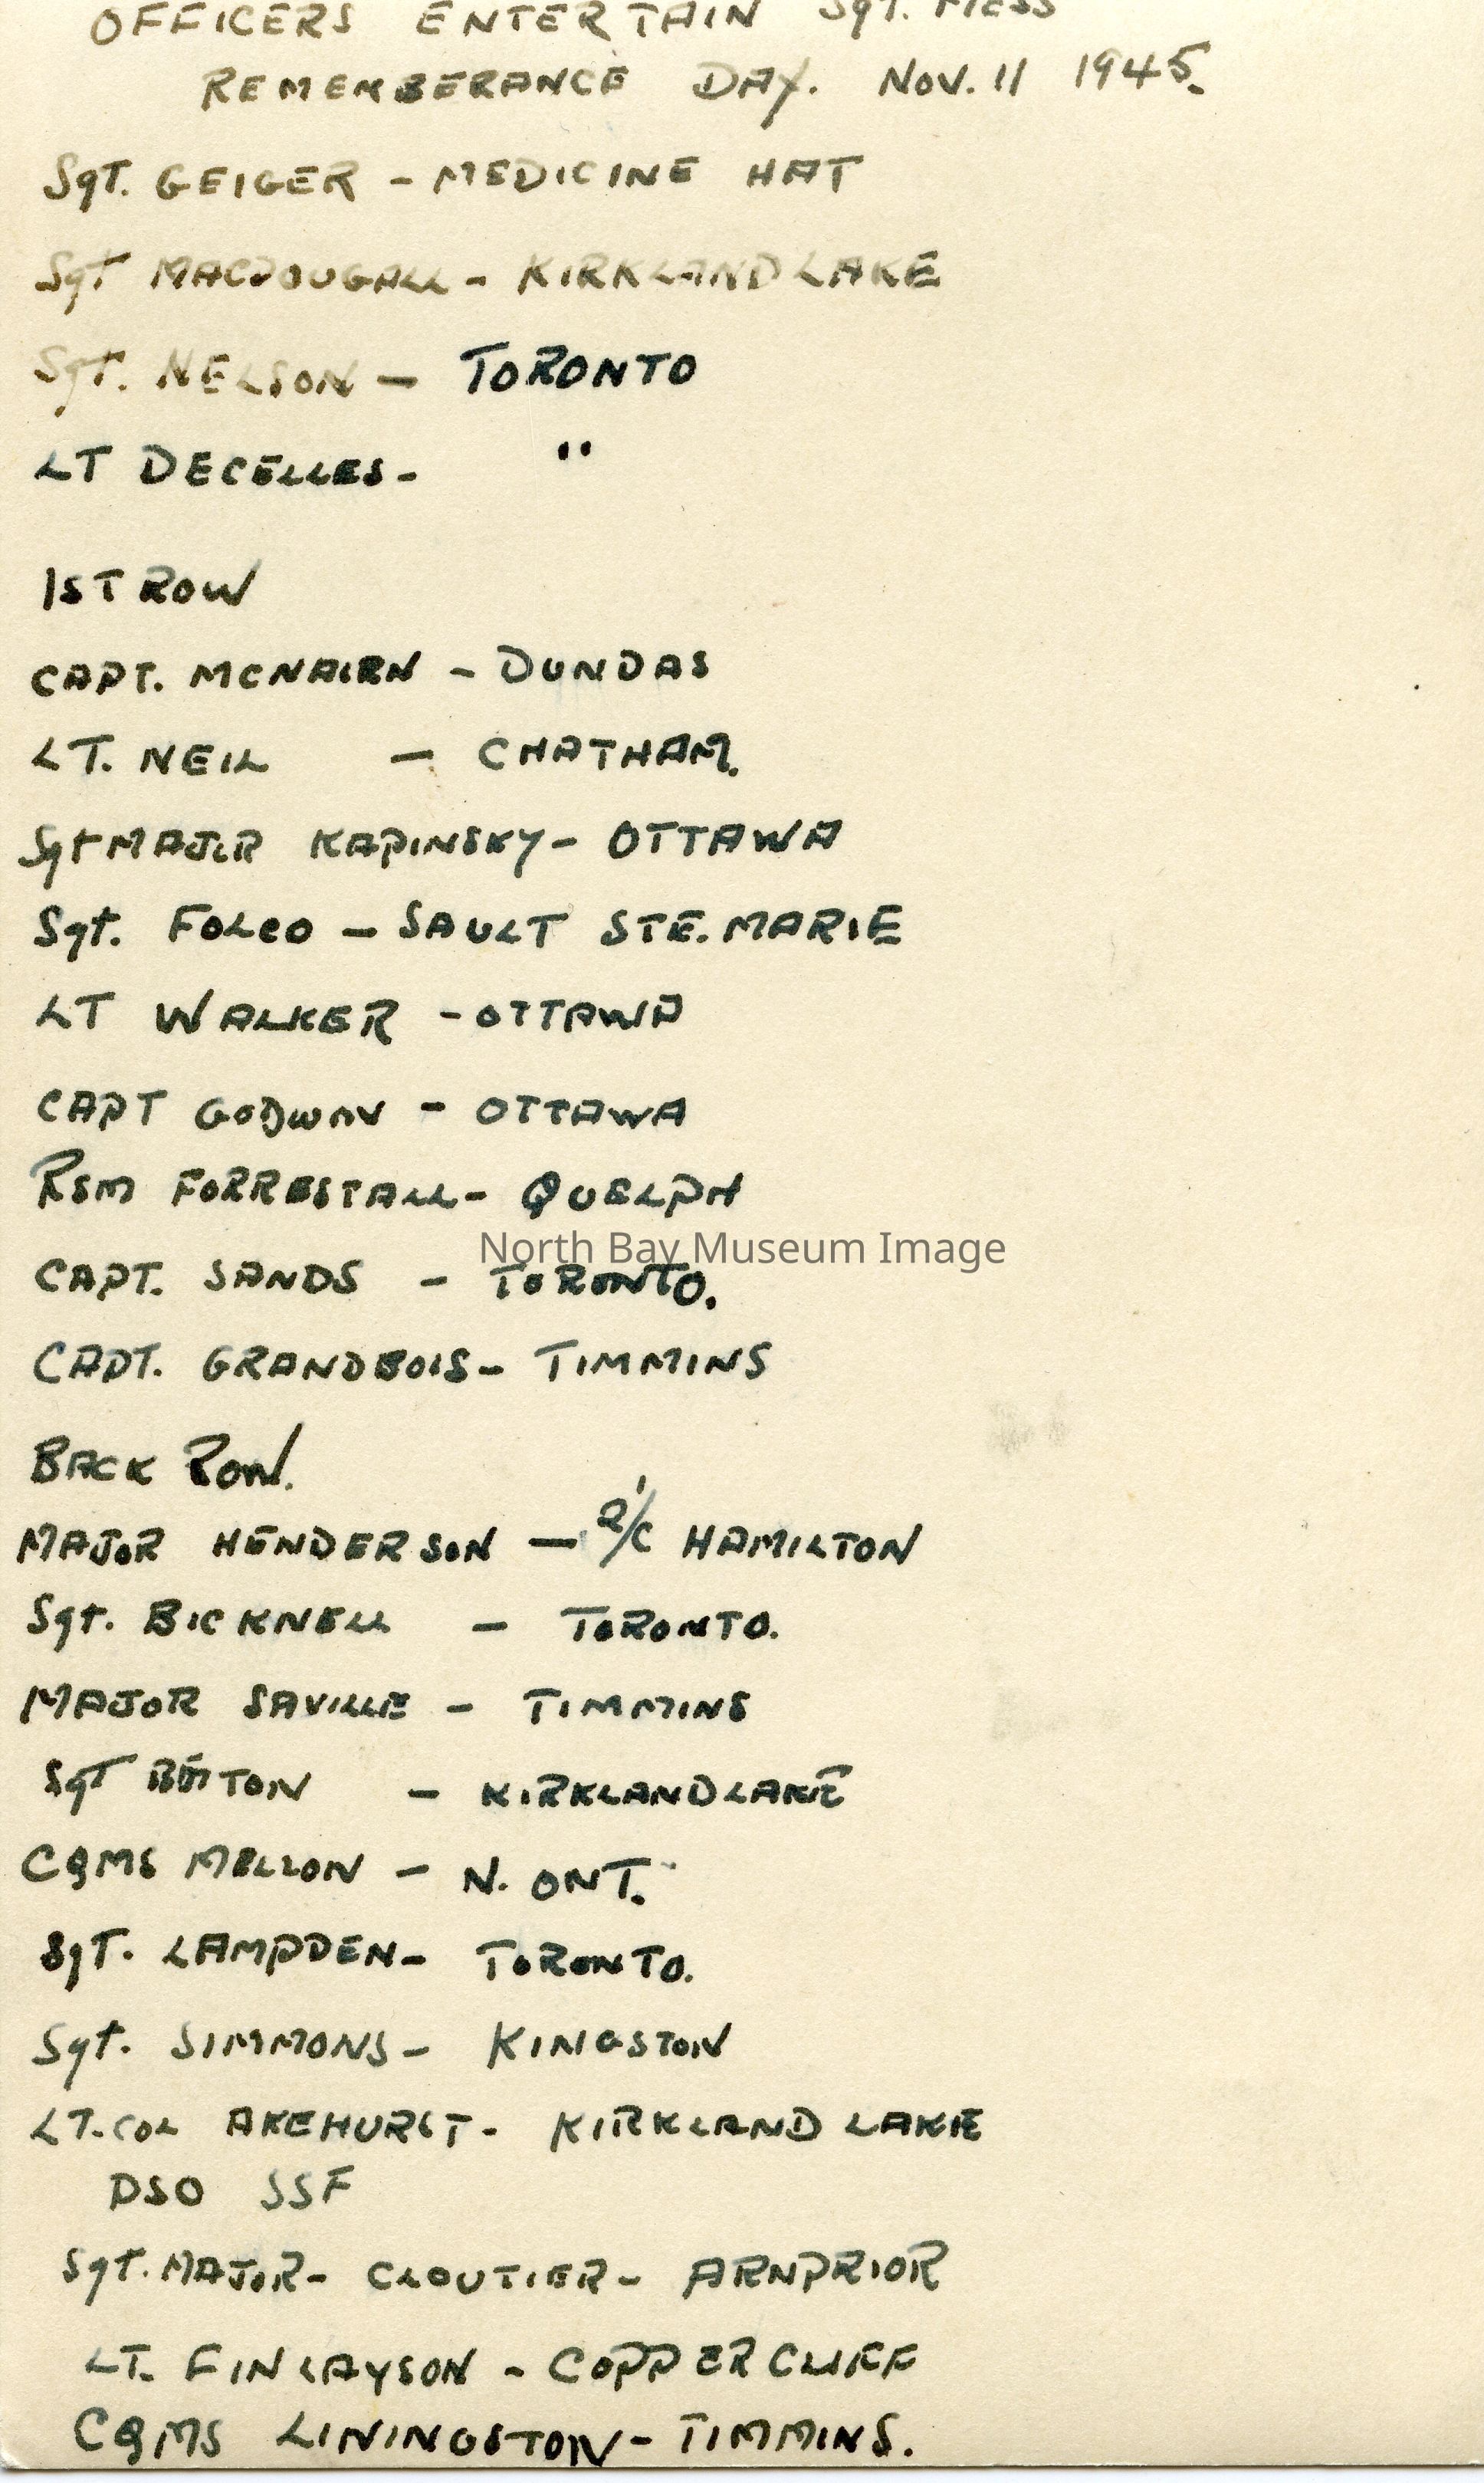 OFFICERS ENTERTAIN Sgt. MESS
REMEMBERANCE DAY. NOV. 11 1945.
Sgt. GEIGER - MEDICINE HAT
SgT MACDOUGALL - KIRKLAND LAKE
Sgt. NELSON - TORONTO
LT DECELLES - "
1ST ROW
CAPT. MCNAIRN - DUNDAS
LT. NEIL - CHATHAM.
Sgt MAJOR KAPINSKY - OTTAWA
Sgt. FOLCO - SAULT STE. MARIE
LT WALKER - OTTAWA
CAPT - OTTAWA
RSM FORRESTALL - QUELPH
North Bay Museum Image
CAPT. SANDS - TORONTO.
CAPT. GRANDBOIS - TIMMINS
BACK ROW.
MAJOR HENDERSON - 2/C HAMILTON
Sgt. BICKNELL - TORONTO.
MAJOR SAVILLE - TIMMINS
SgT - KIRKLAND LAKE
CQMS MELLON - N. ONT.
SgT. LAMPDEN - TORONTO.
Sgt. SIMMONS - KINGSTON
LT. COL AKEHURST - KIRKLAND LAKE
DSO SSF
Sgt. MAJOR - CLOUTIER - ARNPRIOR
LT. FINLAYSON - COPPER CLIFF
CQMS LININGSTON - TIMMINS.